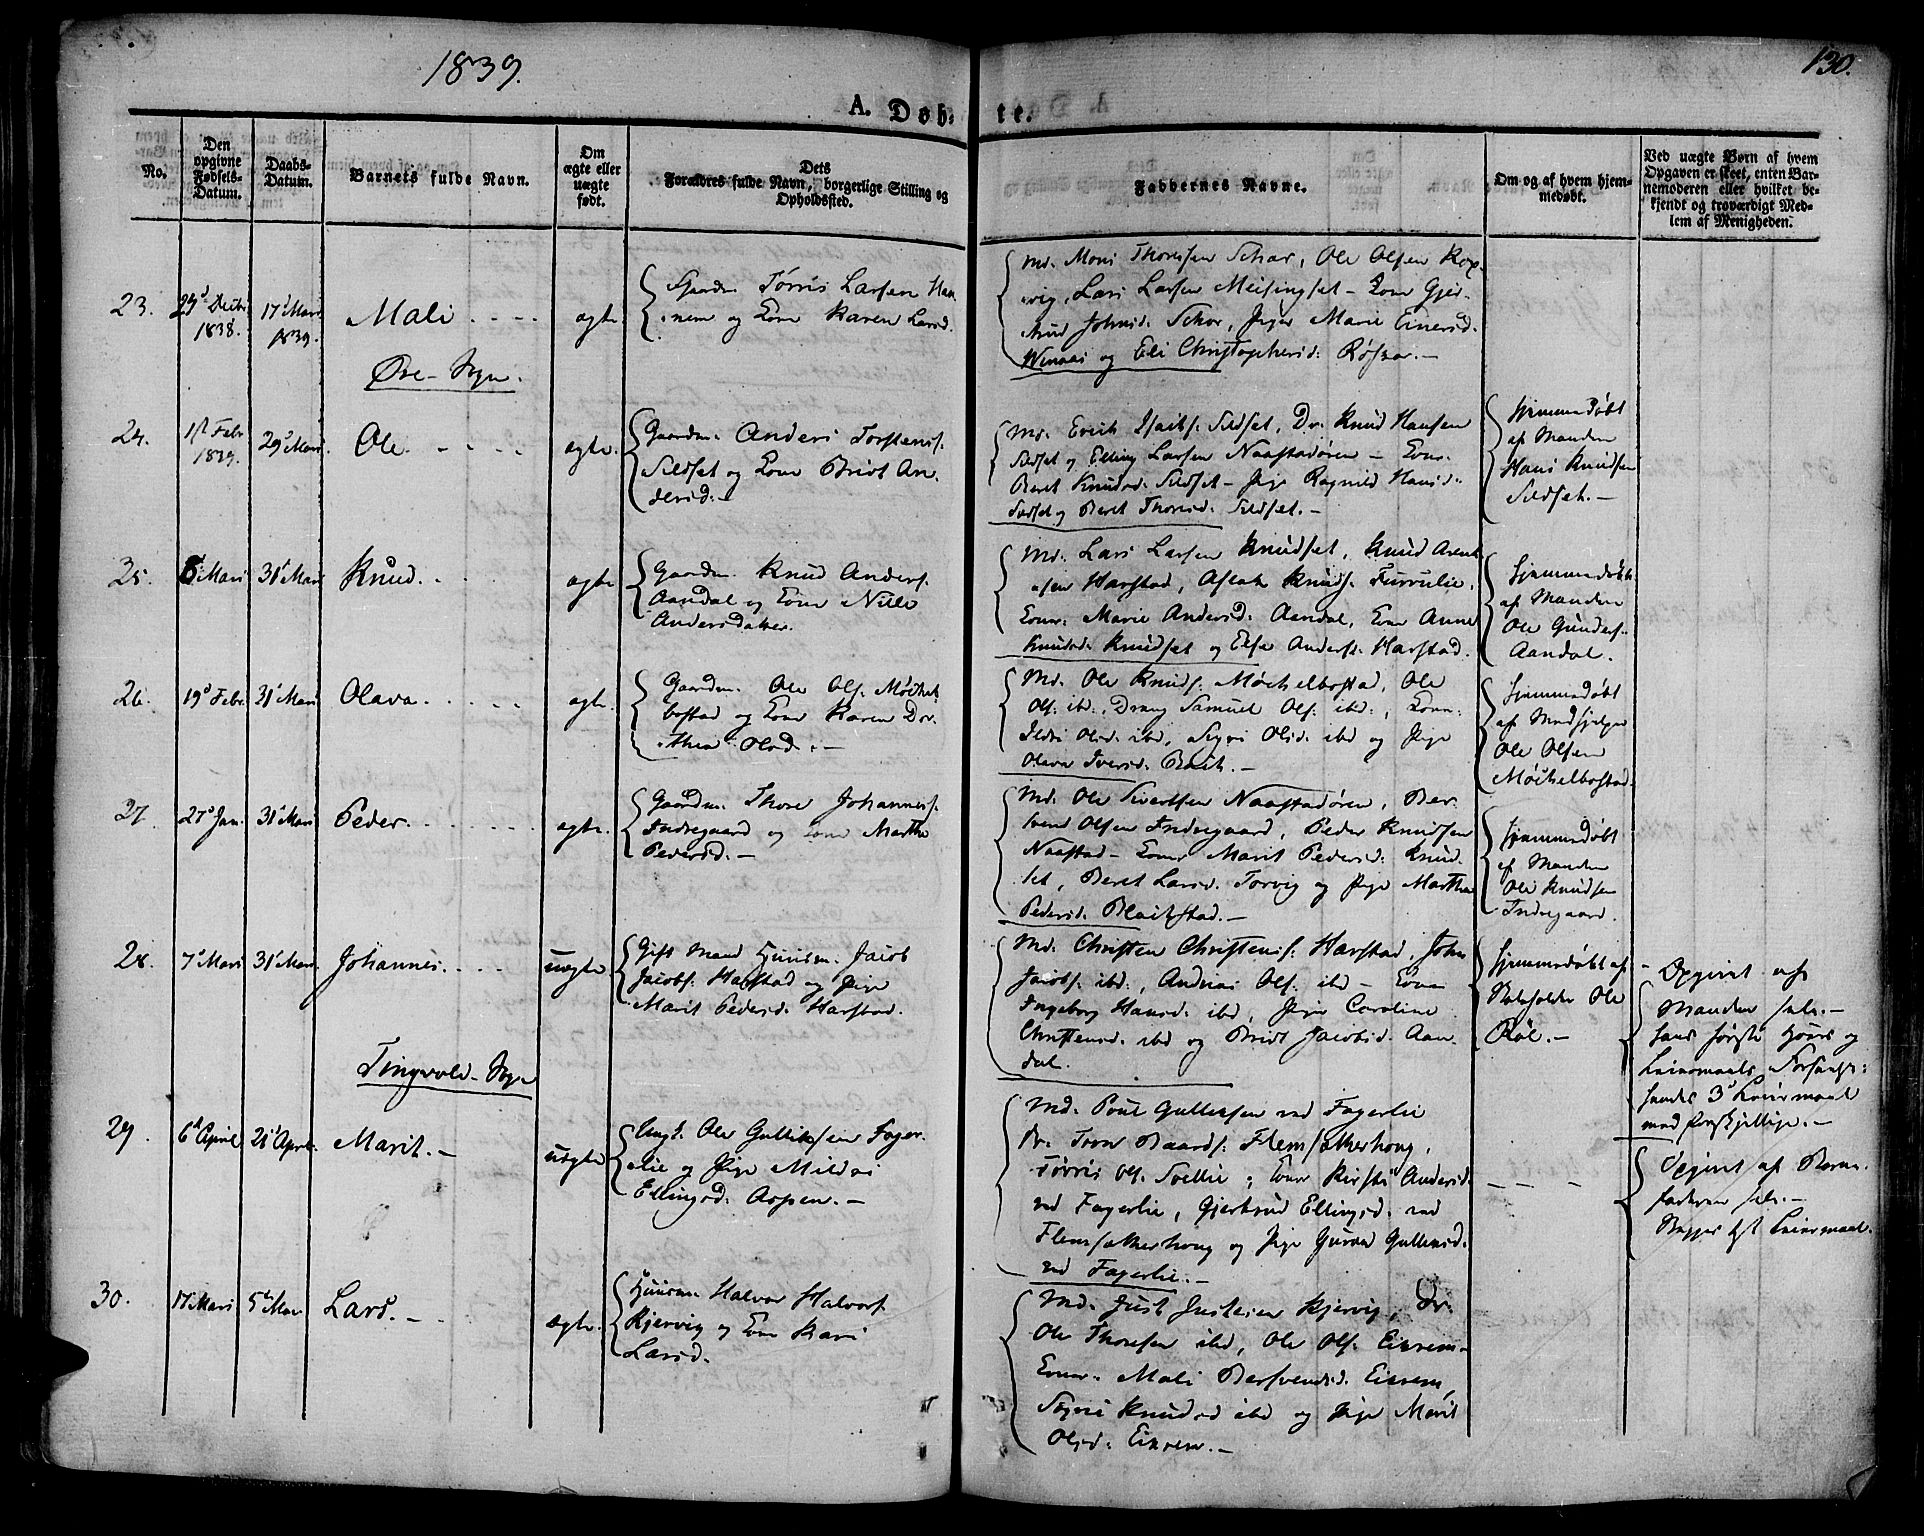 1839.
130.
A. Døb-
te.
No.
Den opgivne Fødsels-Datum.
Daabs-Datum.
Barnets fulde Navn.
Om ægte eller uægte født.
Dets Forældres fulde Navn, borgerlige Stilling og Opholdssted.
Faddernes Navne.
Om og af hvem hjem-medøbt.
Ved uægte Børn af hvem Opgaven er skeet, enten Bar-nemoderen eller hvilket be-kjendt og troværdigt Med-lem af Menigheden.
23.
1838.
1839.
Mali
ægte
Gaardm. Tørris Larsen
og Kone Karen Larsd.
Md. Mons Thoresen Schar, Ole Olsen
Lars Larsen Meisingset - Kone Gjer-
trud Johnsd. Schar, Pige Marie Einersd.
og Eli Christophersd.
Øre-Sogn.
24.
1st Febr 1839.
29 Mars
Ole
ægte
Gaardm. Anders Torstens.
Sildset og Kone Brit An-
dersd.
Md. Erich Isachs. Sildset, Dr. Knud Hansen
Sildset og Elling Larsen Naastadøren - Koner
Beret Knudsd. Sildset - Pige Ragnild Hansd.
Sildset og Beret Thoresd. Sildset.
Hjemmedøbt
af Manden
Hans Knudsen
Sildset.
25.
Mars
31 Mars
Knud.
ægte
Gaardm. Knud Anders.
Aandal og Kone Nille
Andersdatter.
Md. Lars Larsen Knudset, Knud Arent
sen Harstad, Aslak Knuds. Furulie.
Koner Marie Andersd. Aandal, Kone Anne
Knudsd. Knudset og Else Andersd. Harstad.
Hjemmedøbt
af Manden
Ole Gunders.
Aandal.
26.
19 Febr.
31 Mars
Olava
ægte
Gaardm. Ole Ols. Møchel-
bostad og Kone Karen Dor-
thea Olsd.
Md. Ole Knuds. Møchelbostad, Ole
Ols. ibd., Dreng Samuel Ols. ibd., Koner
Ildri Olsd. ibd, Sigri Olsd. ibd og Pige
Olava Iversd.
Hjemmedøbt
af Medhjelper
Ole Olsen
Møchelbostad.
27.
27 Jan.
31 Mars
Peder
ægte
Gaardm. Thore Johannes.
Indregaard og Kone Martha
Pedersd.
Md. Ole Sivertsen Naastadøren, Ber-
svend Olsen Indregaard, Peder Knudsen
Naastad - Koner Marit Pedersd. Knud-
set, Beret Larsd. Torvig og Pige Martha
Pedersd.
Hjemmedøbt
af Manden
Ole Knudsen
Indregaard.
28.
7 Mars
31 Mars
Johannes
uægte
Gift Mand Huusm. Jacob
Jacobs. Harstad og Pige
Marit Pedersd. Harstad.
Md. Christen Christens. Harstad, John
Jacobs. ibd., Andreas Ols. ibd - Kone
Ingeborg Hansd. ibd, Pige Caroline
Christensd. ibd og Brit Jacobsd. Aan-
dal.
Hjemmedøbt af
Skoleholder Ole
Opgivet af
Manden selv.
hans første Hoers og
Leiermaals
hendes 3 Leiermaal
med forskjellige.
Tingvold-Sogn
29.
6 April
21 April
Marit.
uægte
Ungk. Ole Gulliksen Fager-
lie og Pige Mildri
Ellingsd. Aspen.
Md. Poul Gulliksen ved Fagerlie
Dr. Tore Baards. Flemsætherhoug,
Tørris Ols. Soellie, Kone Kirsti Andersd.
ved Fagerlie, Gjertrud Ellingsd. ved
Flemsætherhoug og Pige Guroe Gulliksd.
ved Fagerlie.
Opgivet af Barne-
faderen selv.
Begges 1st Leiermaal.
30.
17 Mars
5 Mai
Lars.
ægte.
Huusm. Halvor Halvors.
Kjervig og Kone Kari
Larsd.
Md. Just Justesen Kjervig, Dr.
Ole Thoresen ibd, Ole Ols. Eikrem
Koner Mali Bersvendsd. Eikrem,
Sigri Knudsd ibd og Pige Marit
Olsd. Eikrem.